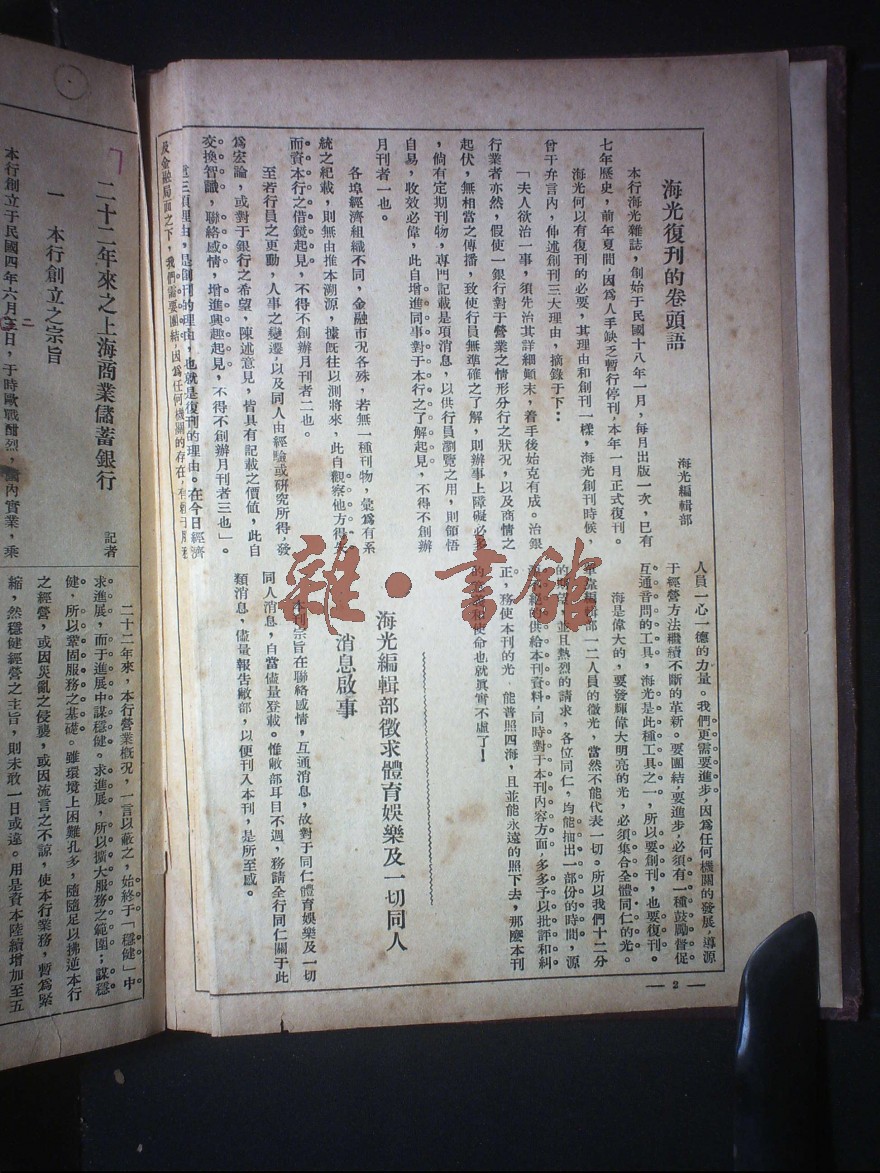 海光復刊的卷頭語
海光編輯部
本行海光雜誌，創始于民國十八年一月，每月出版一次，已有
七年歷史，前年夏間，因為人手缺乏暫行停刊，本年一月正式復刊。
海光何以有復刊的必要，其理由和創刊一樣，海光創刊時候，
曾于弁言內，伸述創刊三大理由，摘錄于下：
「夫人欲治一事，須先治其詳細顛末，着手後始克有成。治銀
行業者亦然，假使一銀行對于營業之情形分行之狀況，以及商情之
起伏，無相當之傳播，致使行員無準確之了解，則辦事上障礙必多
，倘有定期刊物，專門記載是項消息，以供行員瀏覽之用，則領悟
自易，收效必偉，此自增進同事對于本行之了解起見，不得不創辦
月刊者一也。
各埠經濟組織不同，金融市况各殊，若無一種刊物，彙為有系
統之紀載，則無由推本溯源，據既往以測將來，此自觀察他方得失
而資本行之借鏡起見，不得不創辦月刊者二也。
至若行員之更動，人事之變遷，以及同人由經驗或研究所得，發
為宏論，或對于銀行之希望，陳述意見，皆具有記載之價值，此自
交換智識，聯絡感情，增進興趣起見，不得不創辦月刊者三也」。
這三項理由，是創刊的理由，也就是復刊的理由。在今日經濟
及金融局面之下，我們需要團結，因為任何機關的存在，
人員一心一德的力量。我們更需要進步，因為任何機關的發展，導源
于經營方法繼續不斷的革新。要團結，要進步，必須有一種鼓勵督促
互通音問的工具，海光是此種工具之一，所以要創刊，也要復刊。
海是偉大的，要發輝偉大明亮的光，必須集合全體同仁的光。
單靠編輯部一二人員的微光，當然不能代表一切。所以我們十二分
的期望，並且熱烈的請求，各位同仁，均能抽出一部份的時間，源
源不絕的供給本刊資料，同時對于本刊內容方面，多多予以批評和糾
正，務使本刊的光，能普照四海，且並能永遠的照下去，那麼本刊
使命也就眞實不虛了！
海光編輯部徵求體育娛樂及一切同人
消息啟事
本刊宗旨在聯絡感情，互通消息，故對于同仁體育娛樂及一切
同人消息，自當儘量登載。惟敝部耳目不週，務請全行同仁關于此
類消息，儘量報告敝部，以便刊入本刊，是所至感。
— 2 —
二十二年來之上海商業儲蓄銀行
記者
一 本行創立之宗旨
本行創立于民國四年六月二日，于時歐戰酣烈，國內實業，乘
二十二年來，本行營業概况，一言以蔽之，始終于「穩健」中
求進展，而于進展中謀穩健。求進展，所以擴大服務之範圍；謀穩
健，所以鞏固服務之基礎。雖環境上困難孔多，隨隨足以拂逆本行
之經營，或因災亂之侵襲，或因流言之不諒，使本行業務，暫為緊
縮，然穩健經營之主旨，則未敢一日或違。用是資本陸續增加至五
雜·書館